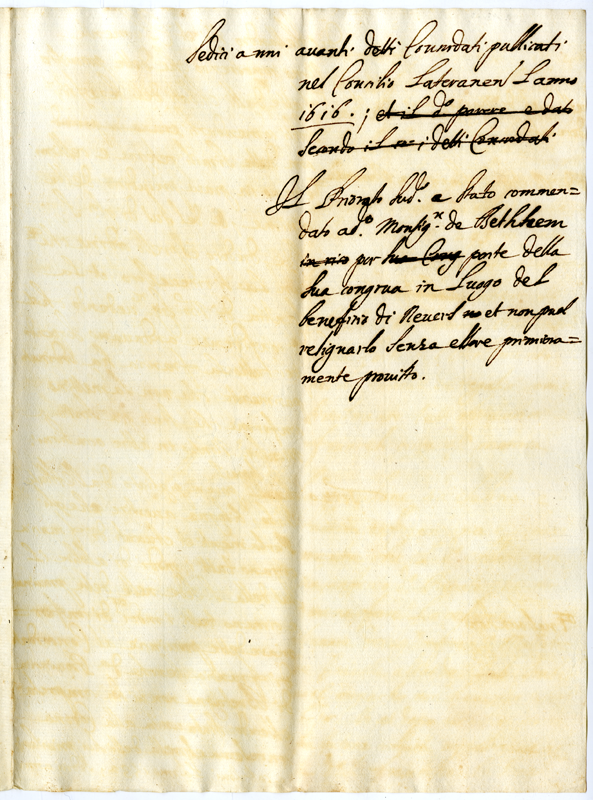 sedici anni avanti detti Concordati publicati
nel Concilio Lateranen' L'anno
1616. ; et il d.º parere e dato
secondo il i detti Concordati
Il Priorato sud.º e stato commen=
dato a d.º Monsig.r de Bethleem
in per sua Cong parte della
sua congrua in luogo del
beneficio di Revers et non puol
resignarlo senza essere primiera=
mente provisto.